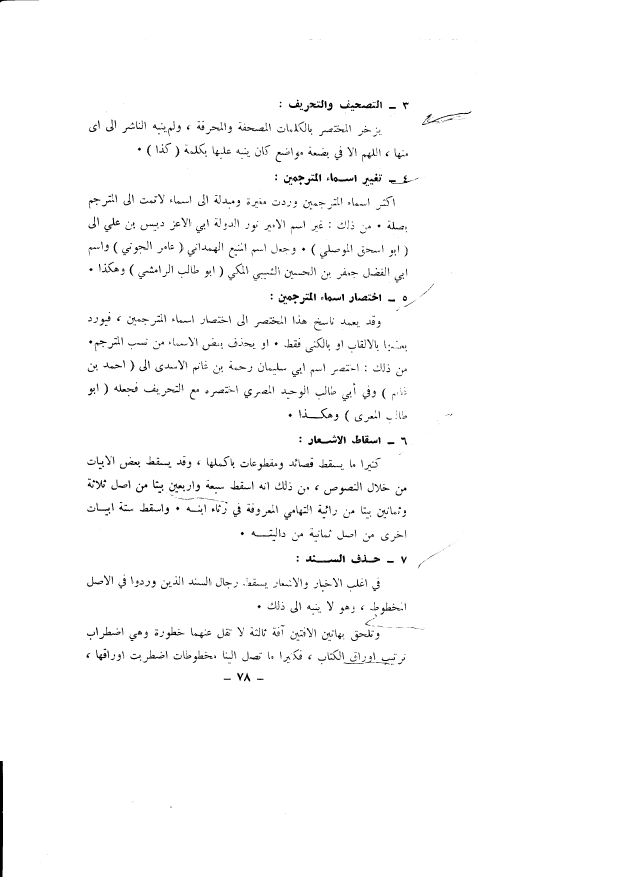 ٣ ــ التصحيف والتحريف :
يزخر المختصر بالكلمات المصحفة والمحرفة ، ولم ينبه الناشر الى اى
منها ، اللهم الا في بضعة مواضع كان ينبه عليها بكلمة ( كذا ) ٠
٤ ــ تغيير اسـماء المترجمين :
اكثر اسماء المترجمين وردت مغيرة ومبدلة الى اسماء لاتمت الى المترجم
بصلة ٠ من ذلك : غير اسم الامير نور الدولة ابي الاعز دبيس بن علي الى
( ابو اسحق الموصلي ) ٠ وجعل اسم المنيع الهمداني ( عامر الجوني ) واسم
ابي الفضل جعفر بن الحسين الشيبي المكي ( ابو طالب الرامشي ) وهكذا ٠
٥ ــ اختصار اسماء المترجمين :
وقد يعمد ناسخ هذا المختصر الى اختصار اسماء المترجمين ، فيورد
بعضها بالالقاب او بالكنى فقط ٠ او يحذف بعض الاسماء من نسب المترجم٠
من ذلك : اختصر اسم ابي سليمان رحمة بن غانم الاسدى الى ( احمد بن
غانم ) وفي أبي طالب الوحيد المصري اختصره مع التحريف فجعله ( ابو
طالب المعرى ) وهكـــذا ٠
٦ ــ اسقاط الاشــعار :
كثيرا ما يسقط قصائد ومقطوعات باكملها ، وقد يسقط بعض الابيات
من خلال النصوص ، من ذلك انه اسقط سبعة واربعين بيتا من اصل ثلاثة
وثمانين بيتا من رائية التهامي المعروفة في رثاء ابنــه ٠ واسقط ستة ابيــات
اخرى من اصل ثمانية من داليتــــه ٠
٧ ــ حــذف الســـند :
في اغلب الاخبار والاشعار يسقط رجال السند الذين وردوا في الاصل
المخطوط ، وهو لا ينبه الى ذلك ٠
وتلحق بهاتين الافتين آفة ثالثة لا تقل عنهما خطورة وهي اضطراب
ترتيب اوراق الكتاب ، فكثيرا ما تصل الينا مخطوطات اضطربت اوراقها ،
ــ ٧٨ ــ